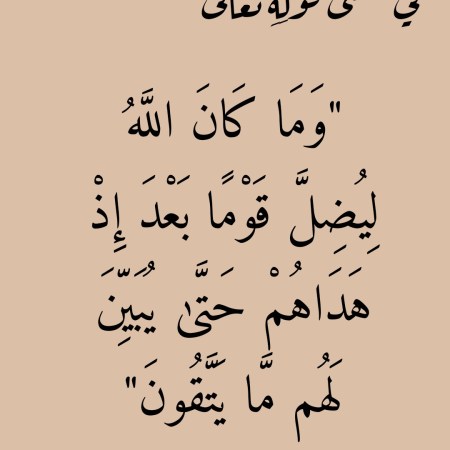 في معنى قوله تعالى
"وَمَا كَانَ اللَّهُ
لِيُضِلَّ قَوْمًا بَعْدَ إِذْ
هَدَاهُمْ حَتَّىٰ يُبَيِّنَ
لَهُم مَّا يَتَّقُونَ"